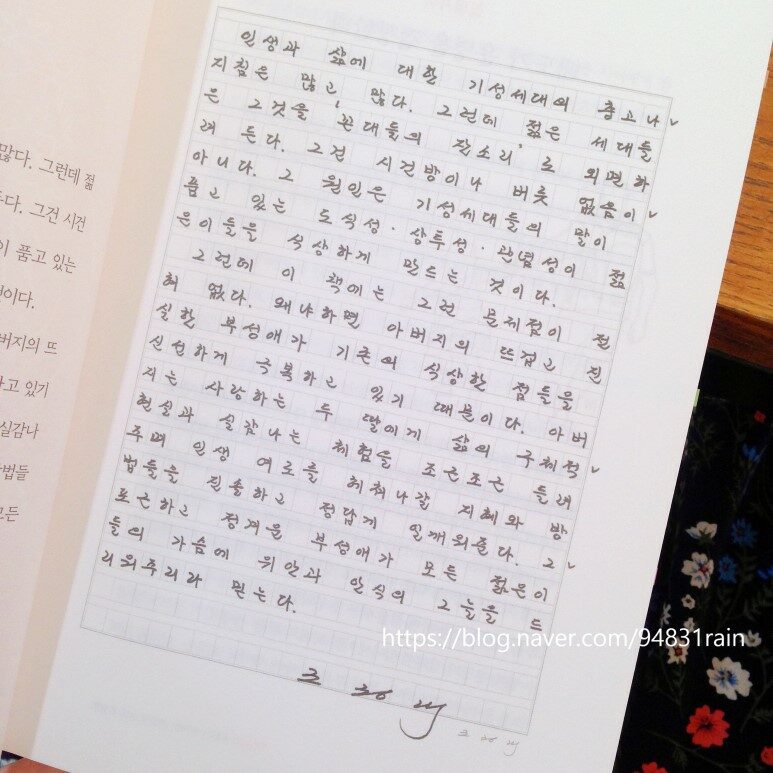 많다. 그런데 젊
두다. 그건 시건
이 품고 있는
것이다.
버지의 뜨
하고 있기
실감나
방법들
모든
인생과 삶에 대한 기성세대의 충고나
지침은 많고, 많다. 그런데 젊은 세대들
은 그것을 '꼰대들의 잔소리'로 외면하
려 든다. 그건 시건방이나 버릇 없음이
아니다. 그 원인은 기성세대들의 말이
품고 있는 도식성·상투성·관념성이 젊
은이들을 식상하게 만드는 것이다.
그런데 이 책에는 그런 문제점이 전
혀 없다. 왜냐하면 아버지의 뜨겁고 진
실한 부성애가 기존의 식상한 점들을
신선하게 극복하고 있기 때문이다. 아버
지는 사랑하는 두 딸에게 삶의 구체적
현실과 실감나는 체험을 조근조근 들려
주며 인생 여로를 헤쳐나갈 지혜와 방
법들을 진솔하고 정답게 일깨워준다. 그
포근하고 정겨운 부성애가 모든 젊은이
들의 가슴에 위안과 안식의 그늘을 드
리워주리라 믿는다.
조정래
조정래
https://blog.naver.com/94831rain